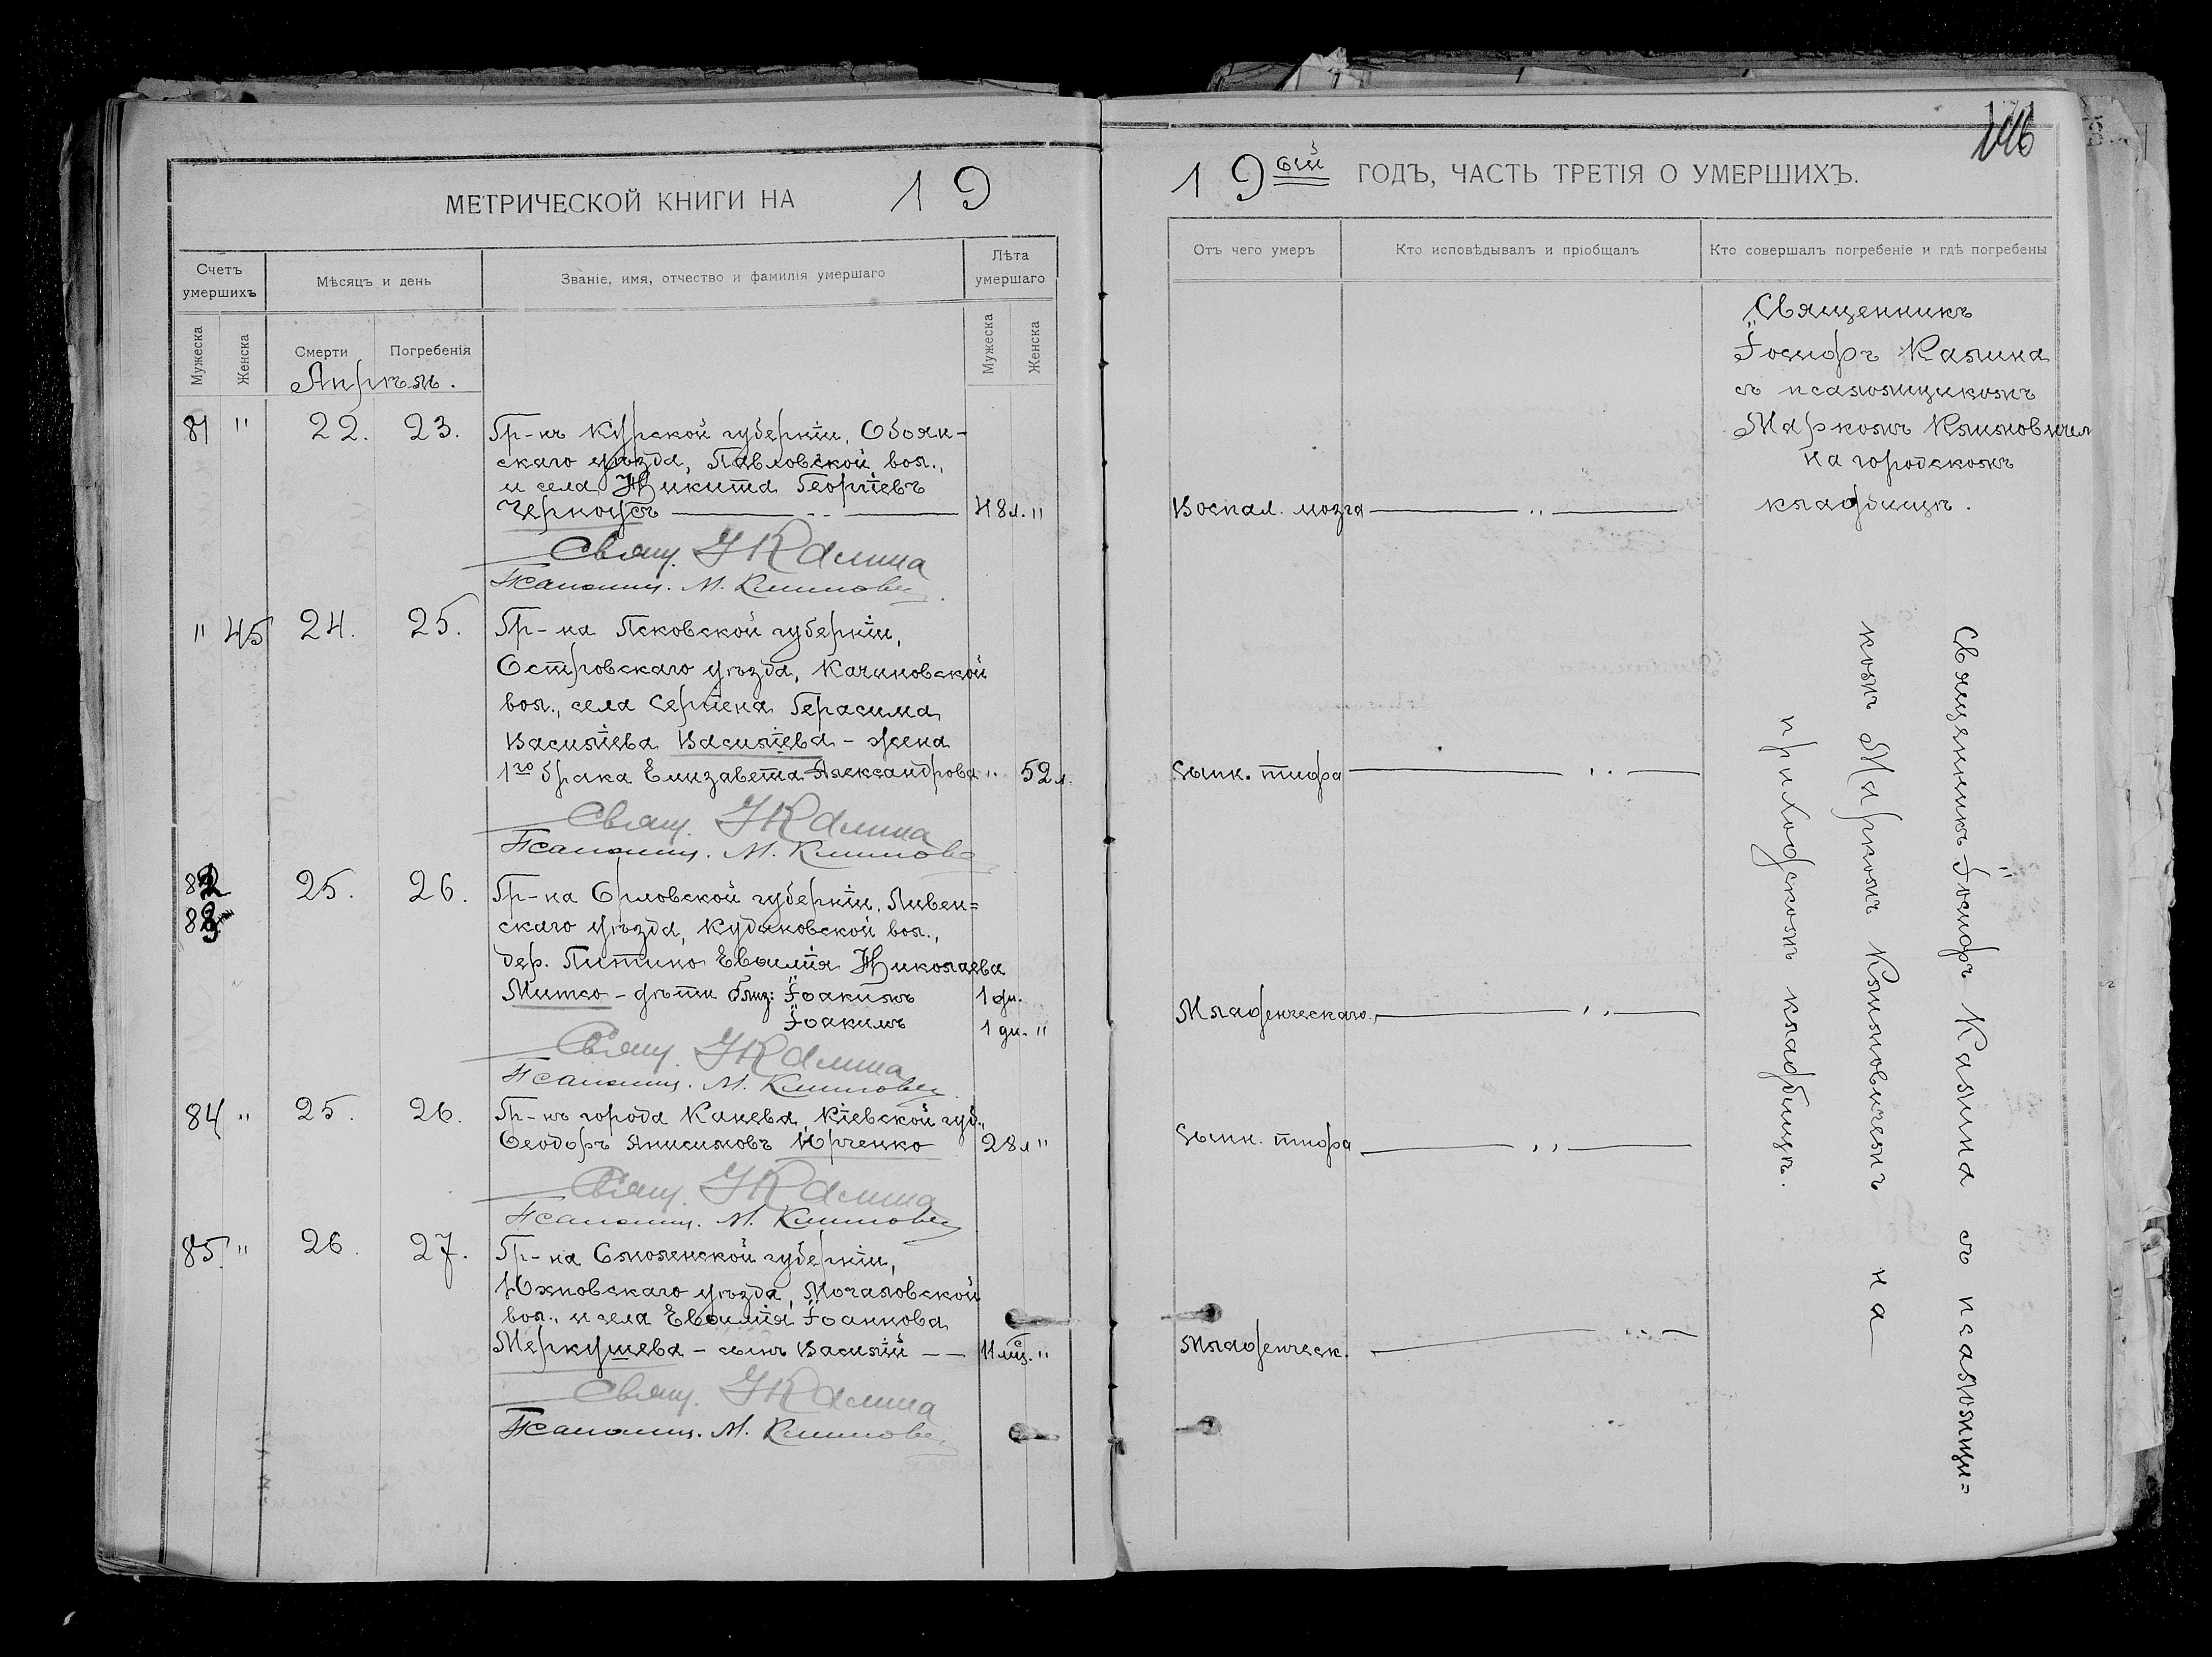 МЕТРИЧЕСКОЙ КНИГИ НА 19
Счетъ умершихъ
Мѣсяцъ и день
Званіе, имя, отчество и фамилія умершаго
Лѣта умершаго
Мужеска
Женска
Смерти
Погребенія
Мужеска
Женска
Апрѣль.
81 " 22. 23. Гр-нъ Курской губерніи, Обоян-
скаго уѣзда, Павловской вол.,
и села Никита Георгіевъ
Черноусъ 48 л. "
Свящ. І Калина
Псаломщ. М. Климович
" 45 24. 25. Гр-на Псковской губерніи,
Островскаго уѣзда, Качановской
вол., села Герасима
Василіева Василіева - жена
1го брака Елизавета Александрова " 52 л.
Свящ. І Калина
Псаломщ. М. Климович
82 25. 26. Гр-на Орловской губерніи, Ливен=
83 скаго уѣзда, вол.,
дер. Питино Евѳимія Николаева
Митко - дѣти близ: Іоакимъ 1 дн.
Іоакимъ 1 дн. "
Свящ. І Калина
Псаломщ. М. Климович
84 " 25. 26. Гр-нъ города Канева, Кіевской губ.,
Ѳеодоръ Анисимовъ Юрченко 28 л "
Свящ. І Калина
Псаломщ. М. Климович
85. " 26. 27. Гр-на Смоленской губерніи,
Юхновскаго уѣзда, Мочаловской
вол., и села Евѳимія Іоаннова
Меркушева - сынъ Василій 11 мѣс. "
Свящ. І Калина
Псаломщ. М. Климович
19 ый ГОДЪ, ЧАСТЬ ТРЕТІЯ О УМЕРШИХЪ.
Отъ чего умеръ
Кто исповѣдывалъ и пріобщалъ
Кто совершалъ погребеніе и гдѣ погребены
Священникъ
Іосифъ Калина
съ псаломщикомъ
Маркомъ Климовичем
на городскомъ
кладбищѣ.
Воспал. мозга "
Сыпн. тифа "
Младенческаго "
Сыпн. тифа "
Младенческ. "
Священникъ Іосифъ Калина съ псаломщи=
комъ Маркомъ Климовичемъ на
приходскомъ кладбищѣ.